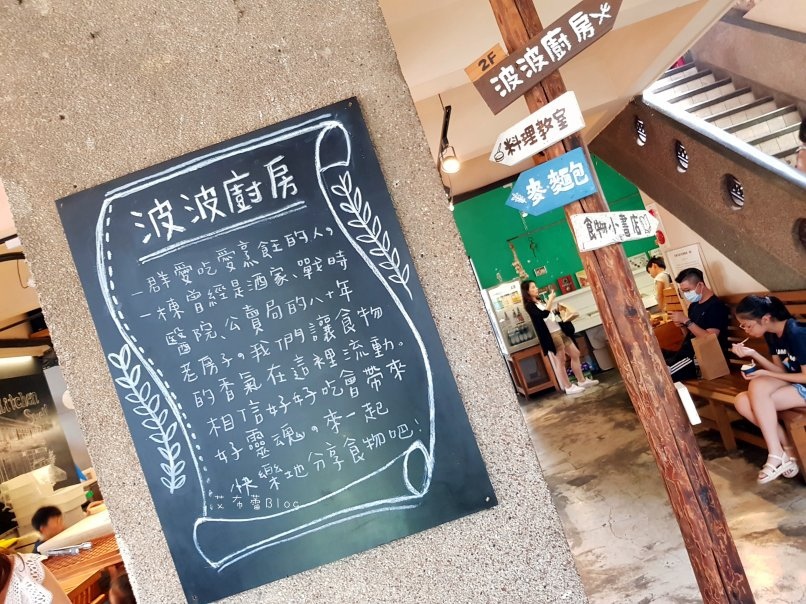 波波廚房
一群愛吃愛烹飪的人，
一棟曾經是酒家、戰時
醫院、公賣局的八十年
老房子。我們讓食物
的香氣在這裡流動。
相信好好吃會帶來
好靈魂。來一起
快樂地分享食物吧！
艾蕾Blog
2F
波波廚房
料理教室
麥麵包
食物小書店
Kitchen